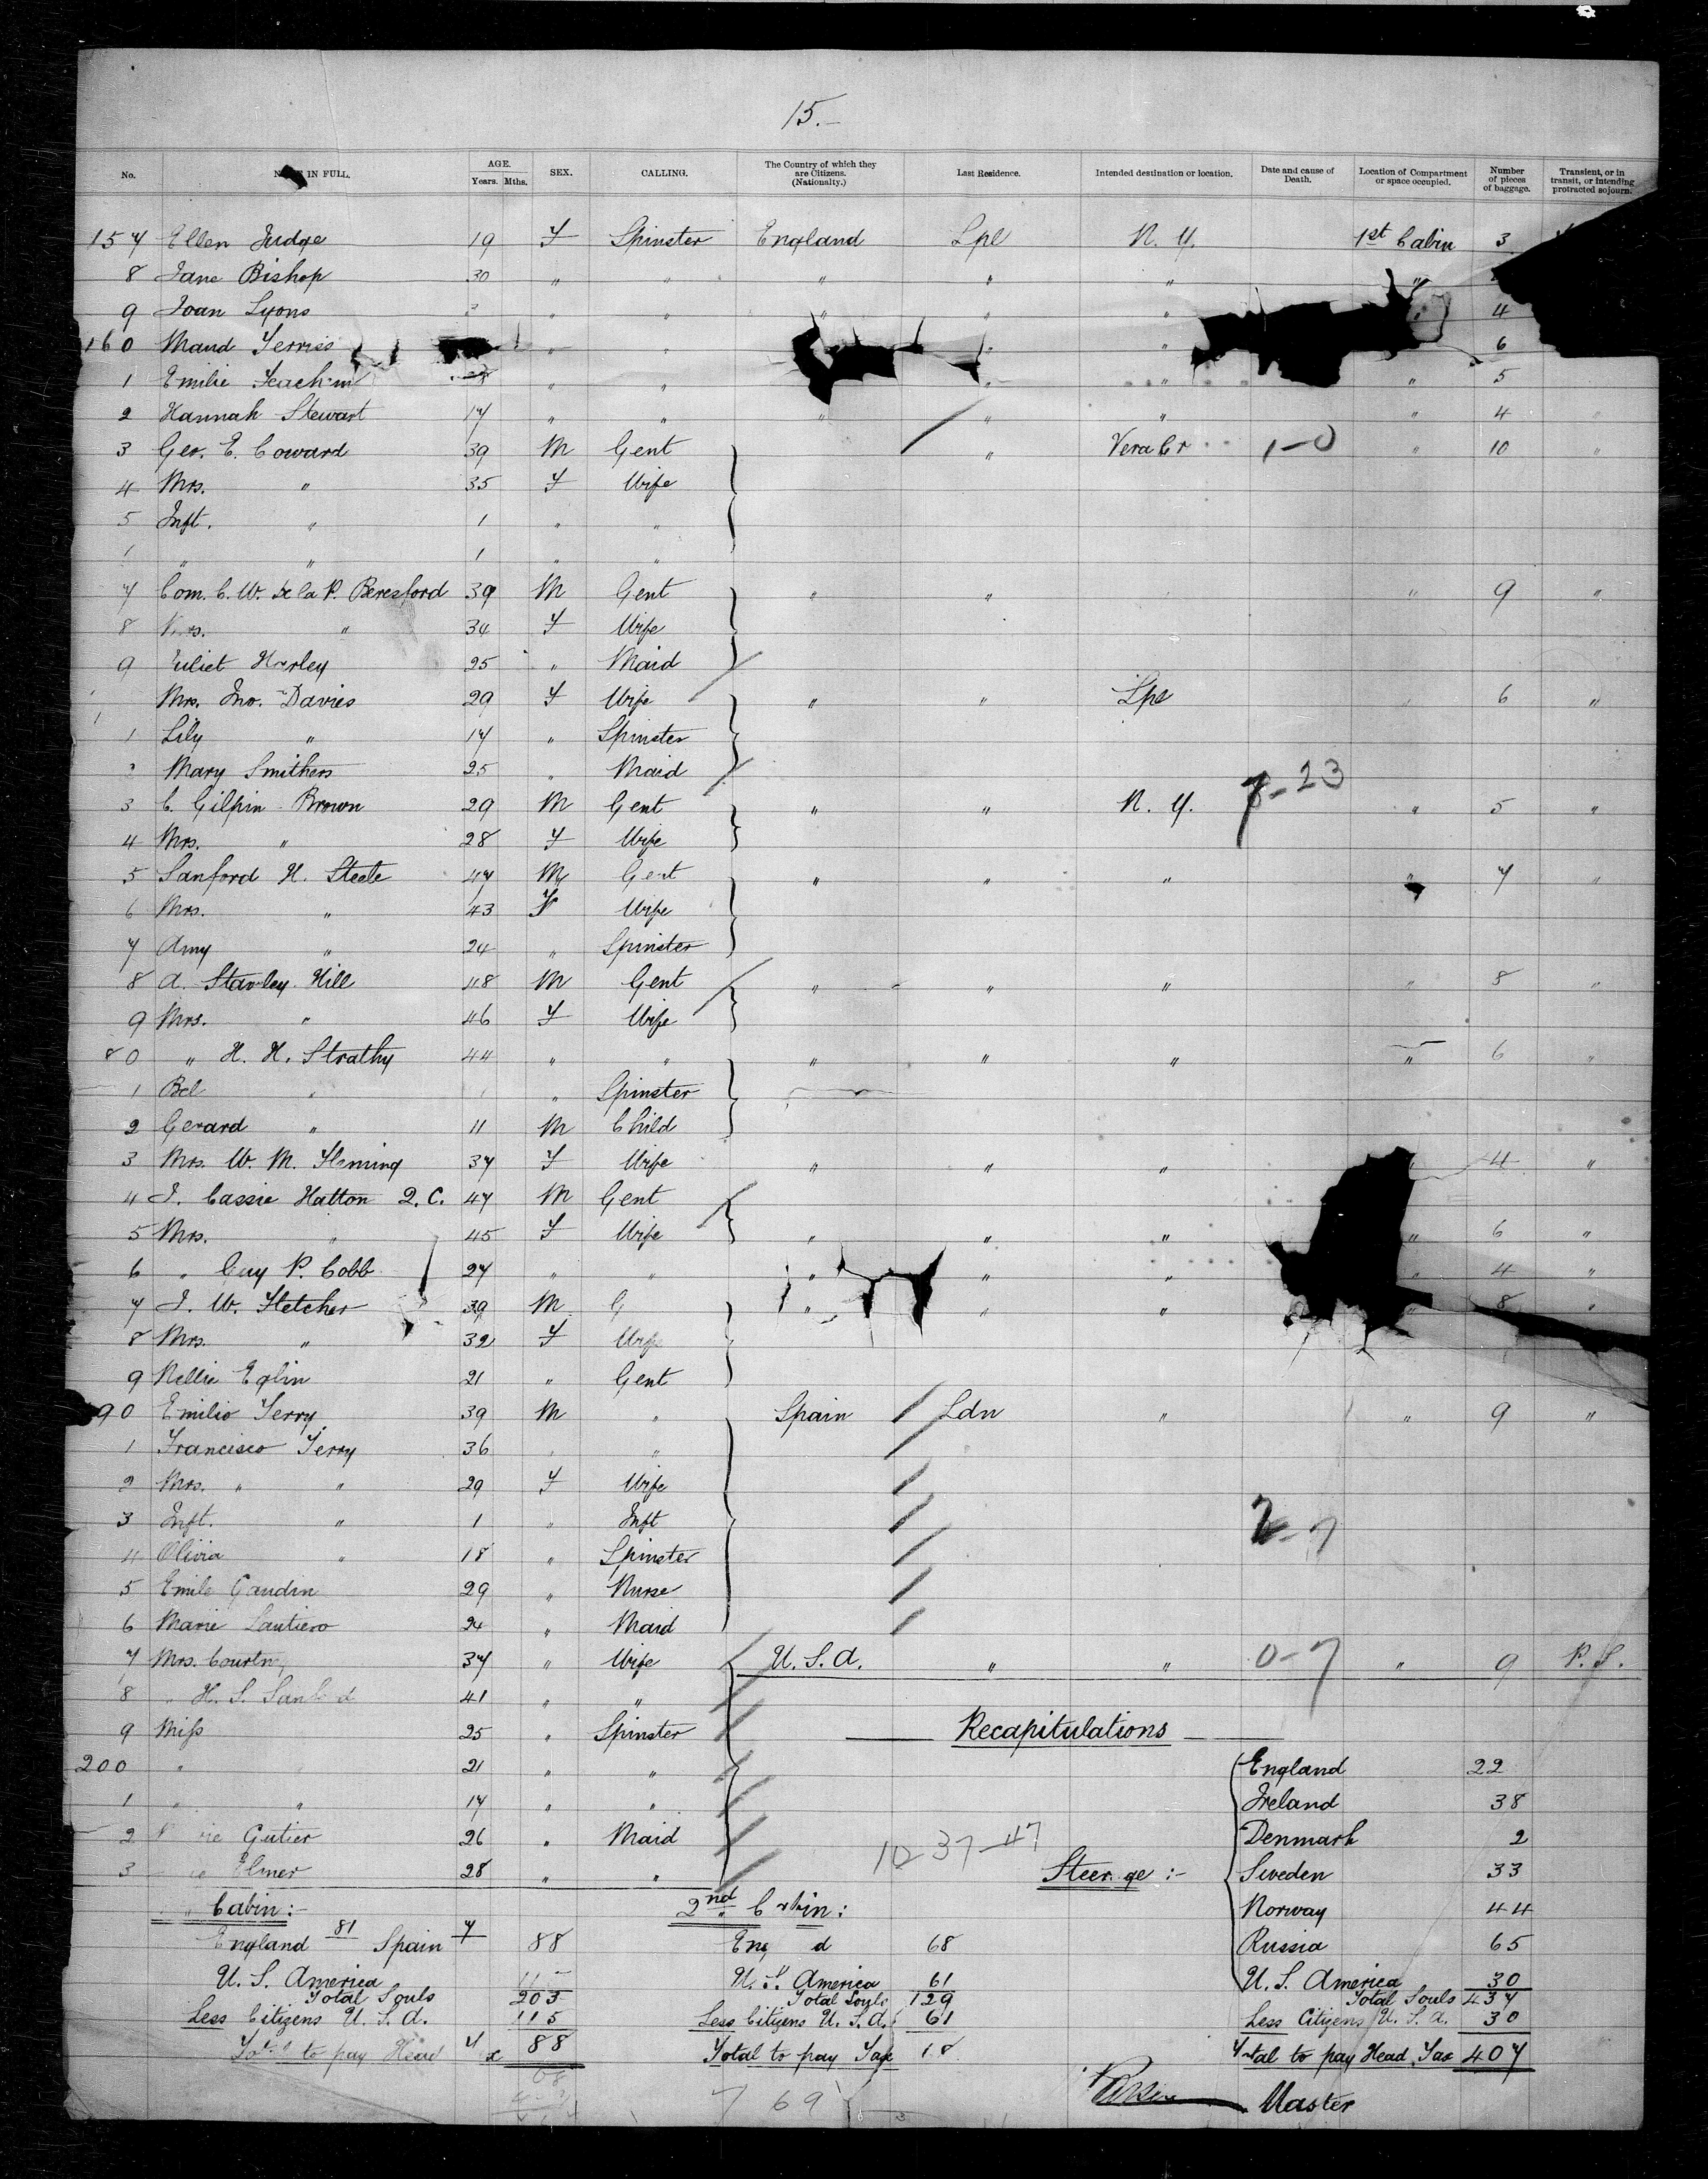 15.-
No. NAME IN FULL. AGE. Years. Mths. SEX. CALLING. The Country of which they are Citizens. (Nationality.) Last Residence. Intended destination or location. Date and cause of Death. Location of Compartment or space occupied. Number of pieces of baggage. Transient, or in transit, or intending protracted sojourn.
157 Ellen Judge 19 F Spinster England Lpl N. Y. 1st Cabin 3
8 Jane Bishop 30 " " " " " "
9 Joan Lyons " " " " " 4
160 Maud Terriss " " " " 6
1 Emilie " " " " " 5
2 Hannah Stewart 17 " " " " " " 4 "
3 Geo. E. Coward 39 M Gent " Vera Cr 1-0 " 10 "
4 Mrs. " 35 F Wife
5 Inft. " 1 " "
" " 1 " "
7 Com. C. W. De la P. Beresford 39 M Gent " " " 9 "
8 Mrs. " 34 F Wife
9 Juliet Harley 25 " Maid
Mrs. Jno. Davies 29 F Wife " " Lpl " 6 "
1 Lily " 17 " Spinster
Mary Smithers 25 " Maid
3 C. Gilpin Brown 29 M Gent " " N. Y. 7-23 " 5 "
4 Mrs. " 28 F Wife
5 Sanford H. Steele 47 M Gent " " " " 7 "
6 Mrs. " 43 F Wife
7 Amy " 24 " Spinster
8 A. Staveley Hill 48 M Gent " " " " 8 "
9 Mrs. " 46 F Wife
80 " H. H. Strathy 44 " " " " " " 6 "
1 Bel " " Spinster
2 Gerard " 11 M Child
3 Mrs. W. M. Fleming 37 F Wife " " " 4 "
4 J. Cassie Hatton Q.C. 47 M Gent
5 Mrs. " 45 F Wife " " " " 6 "
6 " Guy P. Cobb 27 " " " " " " 4 "
7 J. W. Fletcher 39 M G " " " " 8 "
8 Mrs. " 32 F Wife
9 Nellie Eglin 21 " Gent
90 Emilio Terry 39 M " Spain Ldn " " 9 "
1 Francisco Terry 36 " "
2 Mrs. " " 29 F Wife
3 Inft. " 1 " Inft 2-7
4 Olivia " 18 " Spinster
5 Emile Gaudin 29 " Nurse
6 Marie Lautiero 24 " Maid
7 Mrs. Courtn 37 " Wife U. S. A. " " 0-7 " 9 P. S.
8 " H. S. 41 " "
9 Miss 25 " Spinster
Recapitulations
200 " 21 " " England 22
1 " " 17 " " Ireland 38
2 Gutier 26 " Maid Denmark 2
10-37-47
3 Elmer 28 " " Steerage :- Sweden 33
Cabin :- 2nd Cabin : Norway 44
England 81 Spain 7 88 England 68 Russia 65
U. S. America 115 U. S. America 61 U. S. America 30
Total Souls 203 Total Souls 129 Total Souls 437
Less Citizens U. S. A. 115 Less Citizens U. S. A. 61 Less Citizens U. S. A. 30
Total to pay Head 88 Total to pay Tax Total to pay Head Tax 407
69
Master